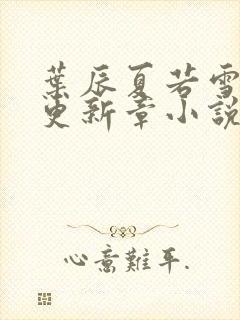 葉辰夏若雪
更新章小說
心意難平.